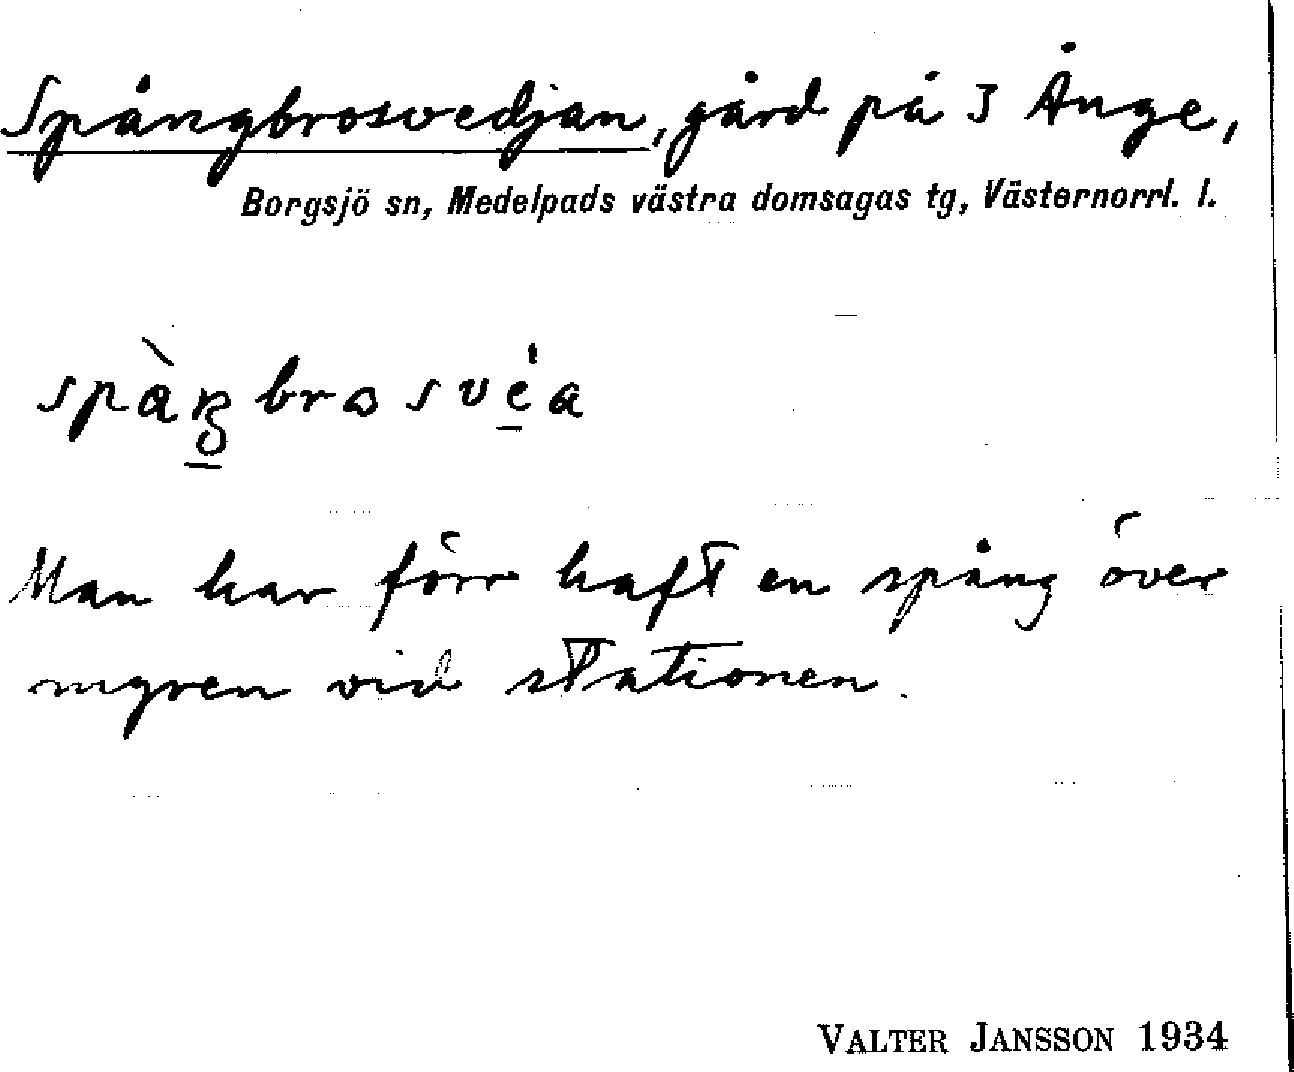 Spångbrosvedjan, gård på 3 Ånge,
Borgsjö sn, Medelpads västra domsagas tg, Västernorrl. l.
Man har förr haft en spång över
myren vid stationen.
VALTER JANSSON 1934